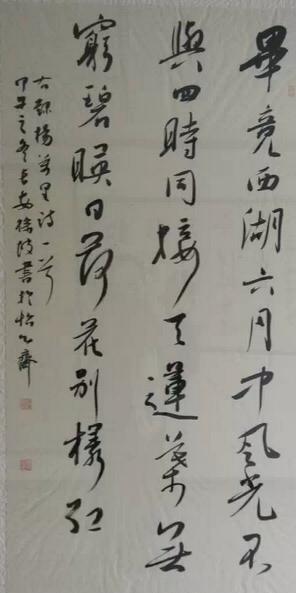 畢竟西湖六月中風光不
與四時同接天蓮葉無
窮碧映日荷花別樣紅
右錄楊萬里詩一首
甲午之冬長安徐波書於怡心齋